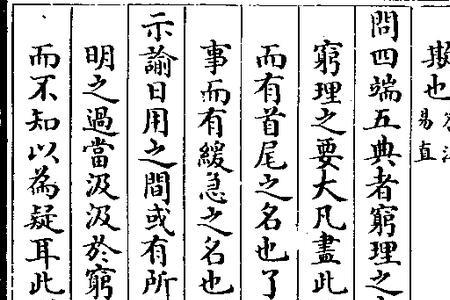 欺也
易直
問四端五典者窮理之
窮理之要大凡盡此
而有首尾之名也了
事而有緩急之名也
示諭日用之間或有所
明之過當汲汲於窮
而不知以為疑耳此